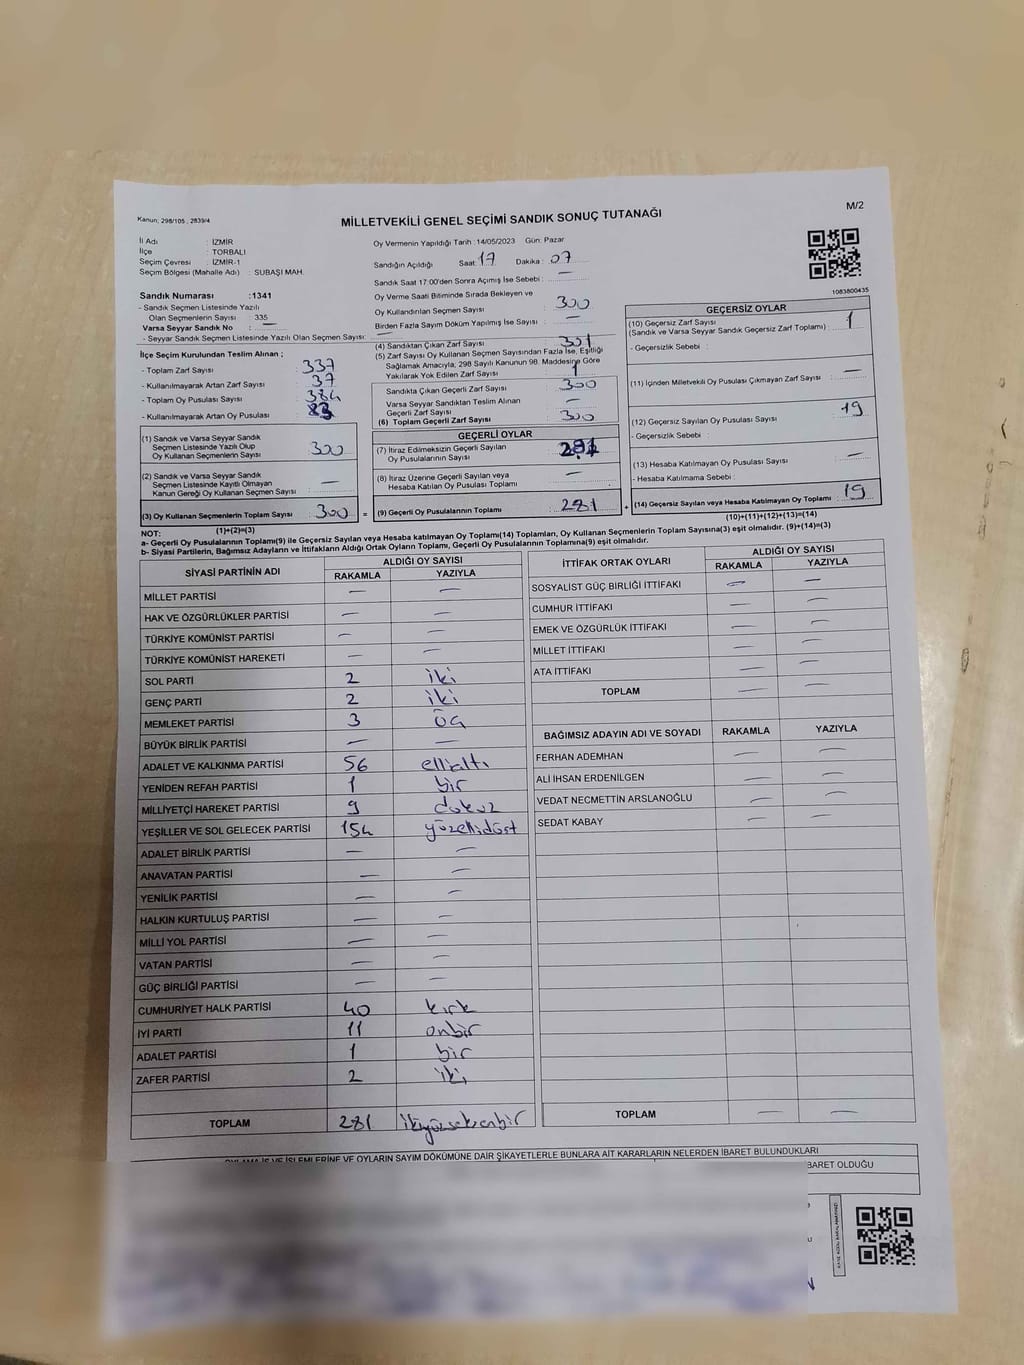 Kanun; 298/105 , 2839/4
M/2
MİLLETVEKİLİ GENEL SEÇİMİ SANDIK SONUÇ TUTANAĞI
İl Adı : İZMİR
İlçe : TORBALI
Seçim Çevresi : İZMİR-1
Seçim Bölgesi (Mahalle Adı) : SUBAŞI MAH.
Sandık Numarası :1341
- Sandık Seçmen Listesinde Yazılı
Olan Seçmenlerin Sayısı : 335
Varsa Seyyar Sandık No : —
- Seyyar Sandık Seçmen Listesinde Yazılı Olan Seçmen Sayısı: —
İlçe Seçim Kurulundan Teslim Alınan ;
- Toplam Zarf Sayısı : 337
- Kullanılmayarak Artan Zarf Sayısı : 37
- Toplam Oy Pusulası Sayısı : 384
- Kullanılmayarak Artan Oy Pusulası : 83
(1) Sandık ve Varsa Seyyar Sandık
Seçmen Listesinde Yazılı Olup
Oy Kullanan Seçmenlerin Sayısı 300
(2) Sandık ve Varsa Seyyar Sandık
Seçmen Listesinde Kayıtlı Olmayan
Kanun Gereği Oy Kullanan Seçmen Sayısı —
(3) Oy Kullanan Seçmenlerin Toplam Sayısı 300 =
(1)+(2)=(3)
Oy Vermenin Yapıldığı Tarih :14/05/2023 Gün: Pazar
Sandığın Açıldığı Saat: 17 Dakika: 07
Sandık Saat 17:00'den Sonra Açımış İse Sebebi : —
Oy Verme Saati Bitiminde Sırada Bekleyen ve
Oy Kullandırılan Seçmen Sayısı : 300
Birden Fazla Sayım Döküm Yapılmış İse Sayısı : —
(4) Sandıktan Çıkan Zarf Sayısı : 301
(5) Zarf Sayısı Oy Kullanan Seçmen Sayısından Fazla İse, Eşitliği
Sağlamak Amacıyla; 298 Sayılı Kanunun 98. Maddesine Göre
Yakılarak Yok Edilen Zarf Sayısı : 1
Sandıkta Çıkan Geçerli Zarf Sayısı : 300
Varsa Seyyar Sandıktan Teslim Alınan
Geçerli Zarf Sayısı : —
(6) Toplam Geçerli Zarf Sayısı : 300
GEÇERLİ OYLAR
(7) İtiraz Edilmeksizin Geçerli Sayılan
Oy Pusulalarının Sayısı 281
(8) İtiraz Üzerine Geçerli Sayılan veya
Hesaba Katılan Oy Pusulası Toplamı —
(9) Geçerli Oy Pusulalarının Toplamı 281 +
1083800435
GEÇERSİZ OYLAR
(10) Geçersiz Zarf Sayısı
(Sandık ve Varsa Seyyar Sandık Geçersiz Zarf Toplamı) : 1
- Geçersizlik Sebebi :
(11) İçinden Milletvekili Oy Pusulası Çıkmayan Zarf Sayısı : —
(12) Geçersiz Sayılan Oy Pusulası Sayısı : 19
- Geçersizlik Sebebi
(13) Hesaba Katılmayan Oy Pusulası Sayısı : —
- Hesaba Katılmama Sebebi :
(14) Geçersiz Sayılan veya Hesaba Katılmayan Oy Toplamı 19
(10)+(11)+(12)+(13)=(14)
NOT:
a- Geçerli Oy Pusulalarının Toplamı(9) ile Geçersiz Sayılan veya Hesaba katılmayan Oy Toplamı(14) Toplamları, Oy Kullanan Seçmenlerin Toplam Sayısına(3) eşit olmalıdır. (9)+(14)=(3)
b- Siyasi Partilerin, Bağımsız Adayların ve İttifakların Aldığı Ortak Oyların Toplamı, Geçerli Oy Pusulalarının Toplamına(9) eşit olmalıdır.
SİYASİ PARTİNİN ADI ALDIĞI OY SAYISI
RAKAMLA YAZIYLA
MİLLET PARTİSİ — —
HAK VE ÖZGÜRLÜKLER PARTİSİ — —
TÜRKİYE KOMÜNİST PARTİSİ — —
TÜRKİYE KOMÜNİST HAREKETİ — —
SOL PARTİ 2 iki
GENÇ PARTİ 2 iki
MEMLEKET PARTİSİ 3 üç
BÜYÜK BİRLİK PARTİSİ — —
ADALET VE KALKINMA PARTİSİ 56 ellialtı
YENİDEN REFAH PARTİSİ 1 bir
MİLLİYETÇİ HAREKET PARTİSİ 9 dokuz
YEŞİLLER VE SOL GELECEK PARTİSİ 154 yüzellidört
ADALET BİRLİK PARTİSİ — —
ANAVATAN PARTİSİ — —
YENİLİK PARTİSİ — —
HALKIN KURTULUŞ PARTİSİ — —
MİLLİ YOL PARTİSİ — —
VATAN PARTİSİ — —
GÜÇ BİRLİĞİ PARTİSİ — —
CUMHURİYET HALK PARTİSİ 40 kırk
İYİ PARTİ 11 onbir
ADALET PARTİSİ 1 bir
ZAFER PARTİSİ 2 iki
TOPLAM 281 ikiyüzseksenbir
İTTİFAK ORTAK OYLARI ALDIĞI OY SAYISI
RAKAMLA YAZIYLA
SOSYALİST GÜÇ BİRLİĞİ İTTİFAKI — —
CUMHUR İTTİFAKI — —
EMEK VE ÖZGÜRLÜK İTTİFAKI — —
MİLLET İTTİFAKI — —
ATA İTTİFAKI — —
TOPLAM — —
BAĞIMSIZ ADAYIN ADI VE SOYADI RAKAMLA YAZIYLA
FERHAN ADEMHAN — —
ALİ İHSAN ERDENİLGEN — —
VEDAT NECMETTİN ARSLANOĞLU — —
SEDAT KABAY — —
TOPLAM — —
OYLAMA İŞ VE İŞLEMLERİNE VE OYLARIN SAYIM DÖKÜMÜNE DAİR ŞİKAYETLERLE BUNLARA AİT KARARLARIN NELERDEN İBARET BULUNDUKLARI
BARET OLDUĞU